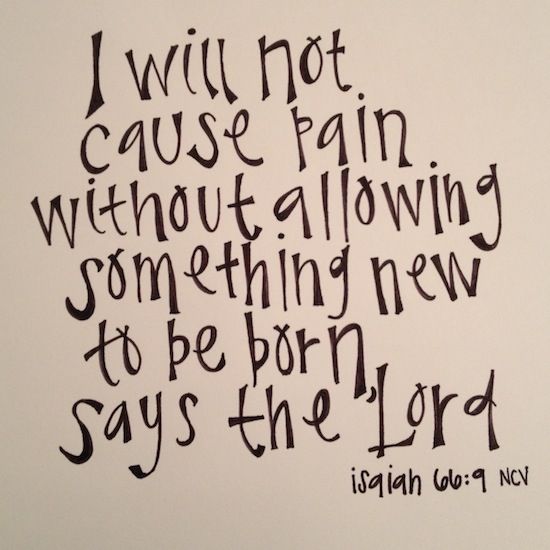 I will not
cause pain
without allowing
something new
to be born,
says the Lord
isaiah 66:9 NCV